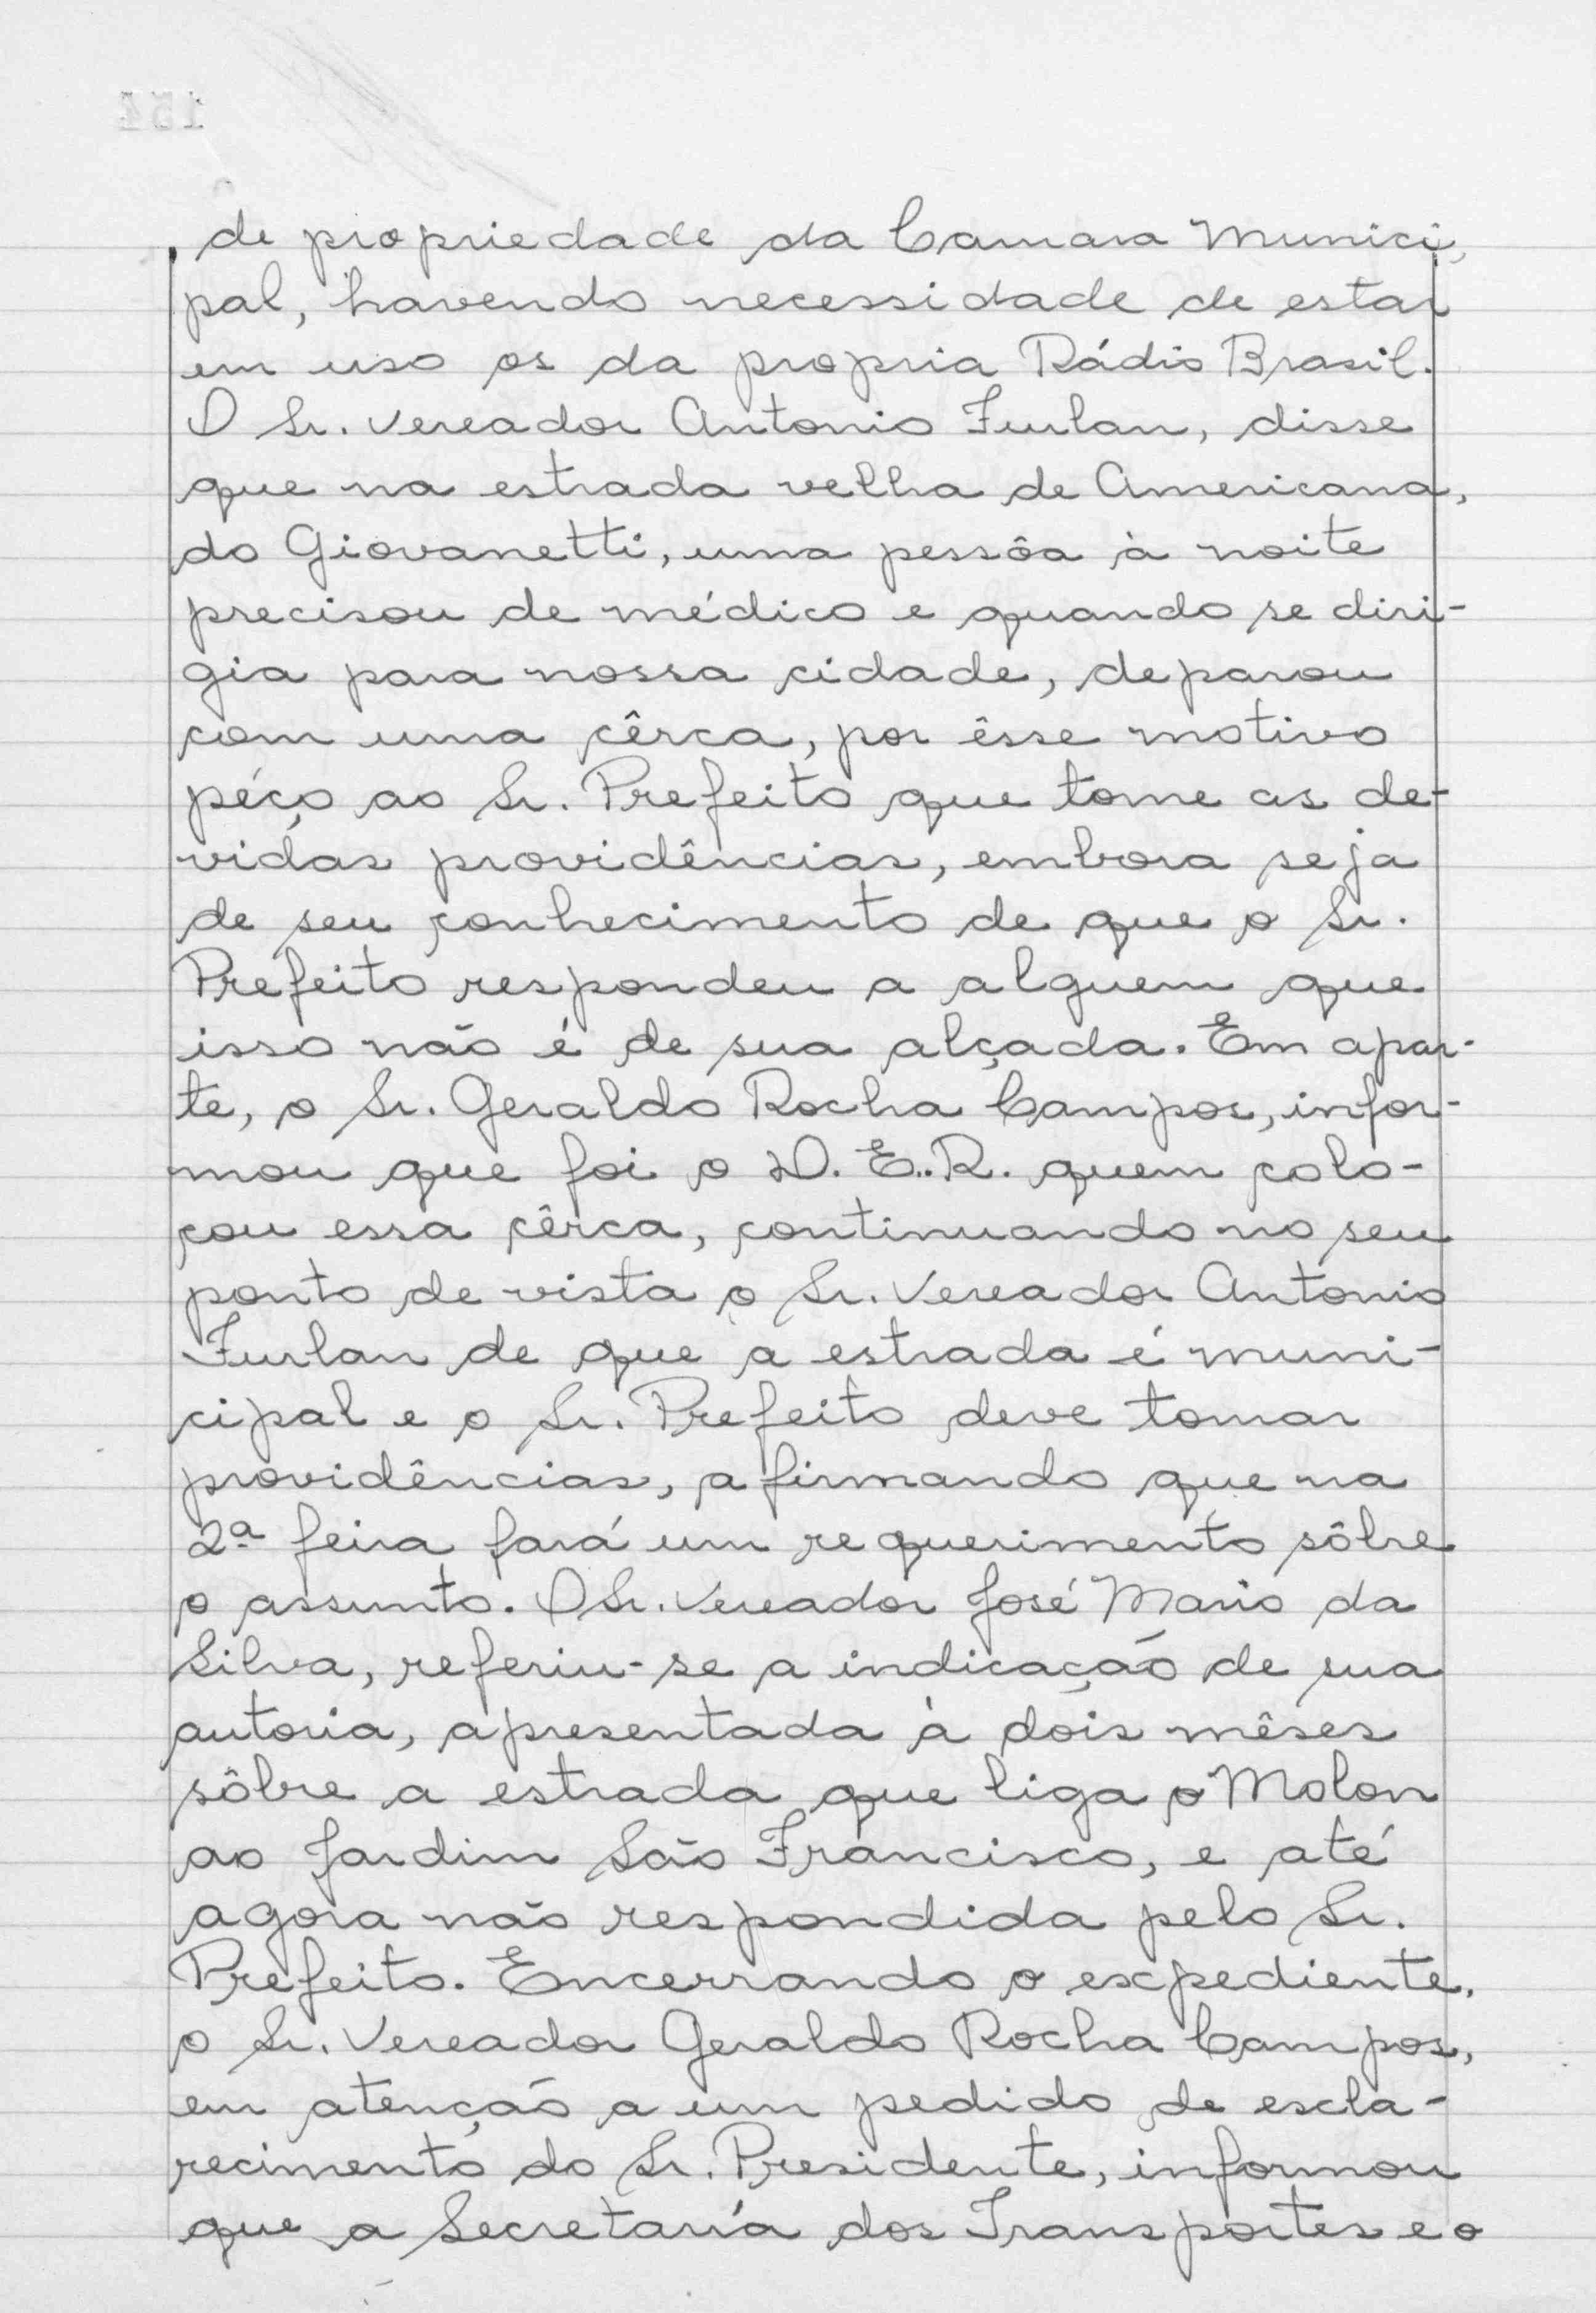 de propriedade da Camara Munici,
pal, havendo necessidade de estar
em uso os da propria Rádio Brasil.
O Sr. Vereador Antonio Furlan, disse
que na estrada velha de Americana,
do Giovanetti, uma pessôa à noite
precisou de médico e quando se diri-
gia para nossa cidade, deparou
com uma cêrca, por êsse motivo
péço ao Sr. Prefeito que tome as de-
vidas providências, embora seja
de seu conhecimento de que o Sr.
Prefeito respondeu a alguem que
isso não é de sua alçada. Em apar-
te, o Sr. Geraldo Rocha Campos, infor-
mou que foi o D. E..R. quem colo-
cou essa cêrca, continuando no seu
ponto de vista o Sr. Vereador Antonio
Furlan de que a estrada é muni-
cipal e o Sr. Prefeito deve tomar
providências, afirmando que na
2ª feira fará um requerimento sôbre
o assunto. O Sr. Vereador José Mario da
Silva, referiu-se a indicação de sua
autoria, apresentada à dois mêses
sôbre a estrada que liga o Molon
ao Jardim São Francisco, e até
agora não respondida pelo Sr.
Prefeito. Encerrando o expediente,
o Sr. Vereador Geraldo Rocha Campos,
em atenção a um pedido de escla-
recimento do Sr. Presidente, informou
que a Secretaría dos Transportes e o